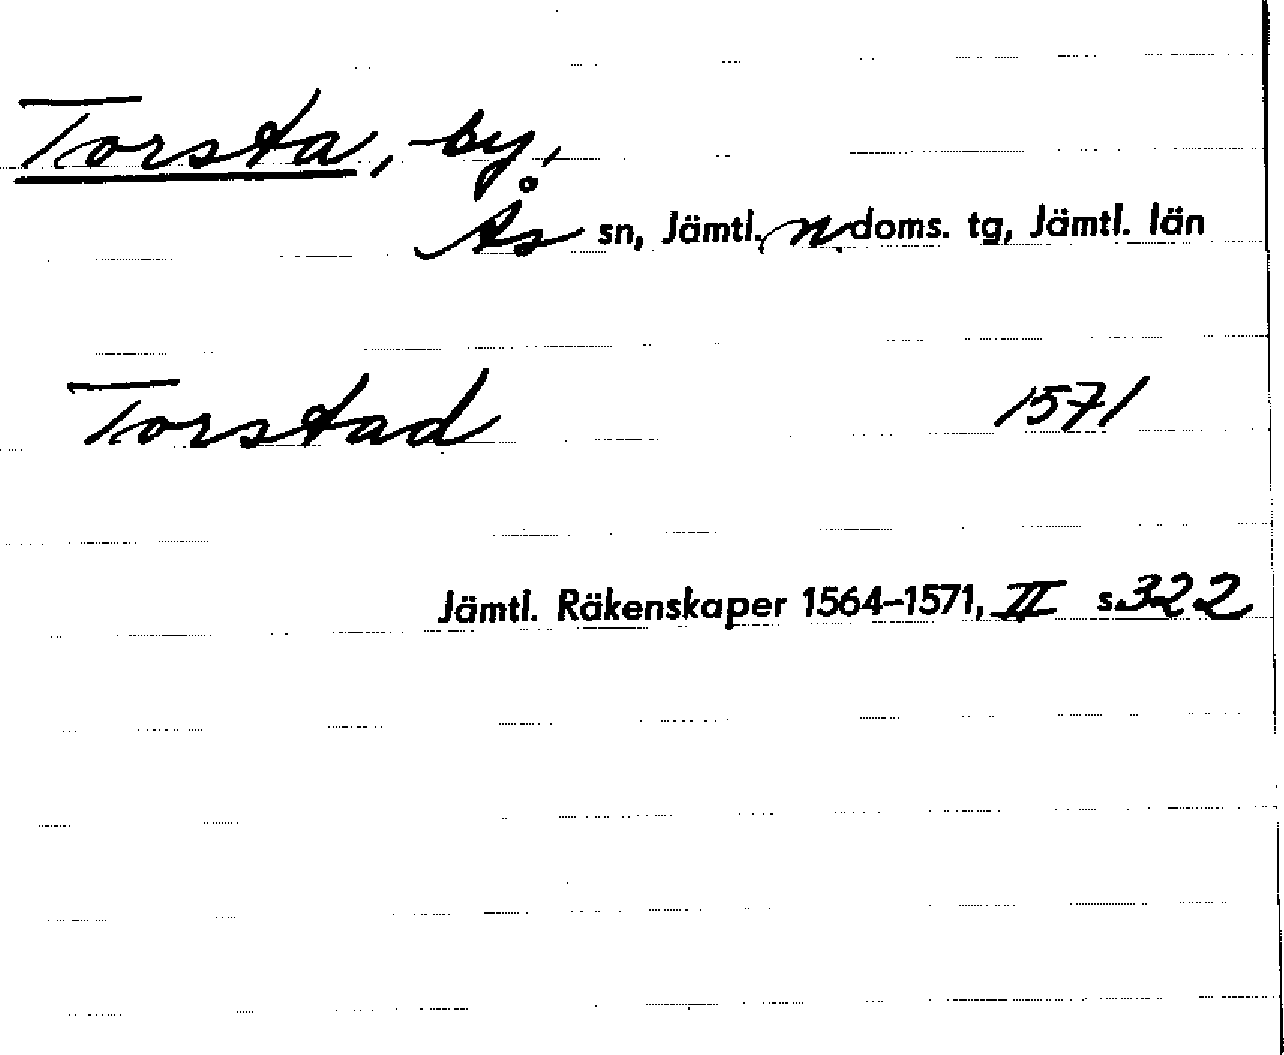 Torsta, by,
Ås sn, Jämtl. n. doms. tg, Jämtl. län
Torstad 1571
Jämtl. Räkenskaper 1564-1571, II s. 322